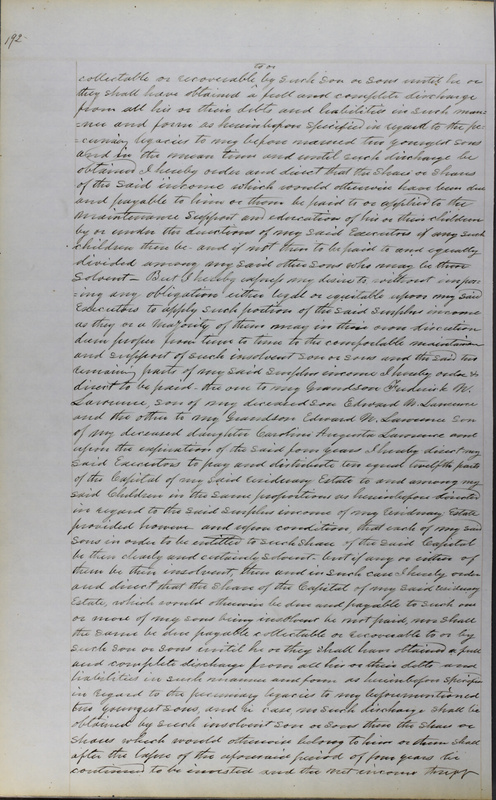 192
to or
collectable or recoverable by such son or sons until he or
they shall have obtained a full and complete discharge
from all his or their debts and liabilities in such man=
=ner and form as hereinbefore specified in regard to the pe=
=cuniary legacies to my before named two youngest sons
and in the mean time and until such discharge be
obtained I hereby order and direct that the share or shares
of the said income which would otherwise have been due
and payable to him or them be paid to or applied to the
maintenance support and education of his or their children
by or under the directions of my said Executors if any such
children there be and if not then to be paid to and equally
divided among my said other sons who may be then
solvent - But I hereby express my desire to without impos=
=ing any obligation either legal or equitable upon my said
Executors to apply such portion of the said surplus income
as they or a majority of them may in their own discretion
deem proper from time to time to the comfortable maintenance
and support of such insolvent son or sons and the said two
remaining parts of my said surplus income I hereby order &
direct to be paid the one to my Grandson Frederick N.
Lawrence, son of my deceased son Edward N. Lawrence
and the other to my Grandson Edward N. Lawrence son
of my deceased daughter Caroline Augusta Lawrence and
upon the expiration of the said four years I hereby direct my
said Executors to pay and distribute ten equal twelfth parts
of the Capital of my said residuary Estate to and among my
said Children in the same proportions as hereinbefore directed
in regard to the said surplus income of my residuary Estate
provided however and upon condition, that each of my said
sons in order to be entitled to such share of the said Capital
be then clearly and certainly solvent. but if any or either of
them be then insolvent, then and in such case I hereby order
and direct that the share of the Capital of my said residuary
Estate, which would otherwise be due and payable to such one
or more of my sons being insolvent be not paid, nor shall
the same be due payable collectable or recoverable to or by
such son or sons until he or they shall have obtained a full
and complete discharge from all his or their debts and
liabilities in such manner and form as hereinbefore specified
in regard to the pecuniary legacies to my beforementioned
two youngest sons, and in case, no such discharge shall be
obtained by such insolvent son or sons then the share or
shares which would otherwise belong to him or them shall
after the lapse of the aforesaid period of four years be
continued to be invested and the net income